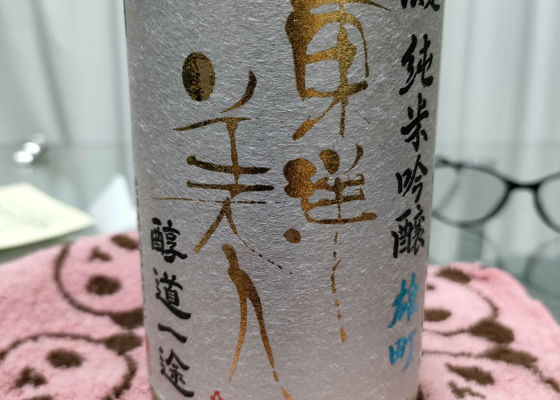 純米吟醸 雄町
東洋
美人
醇道一途